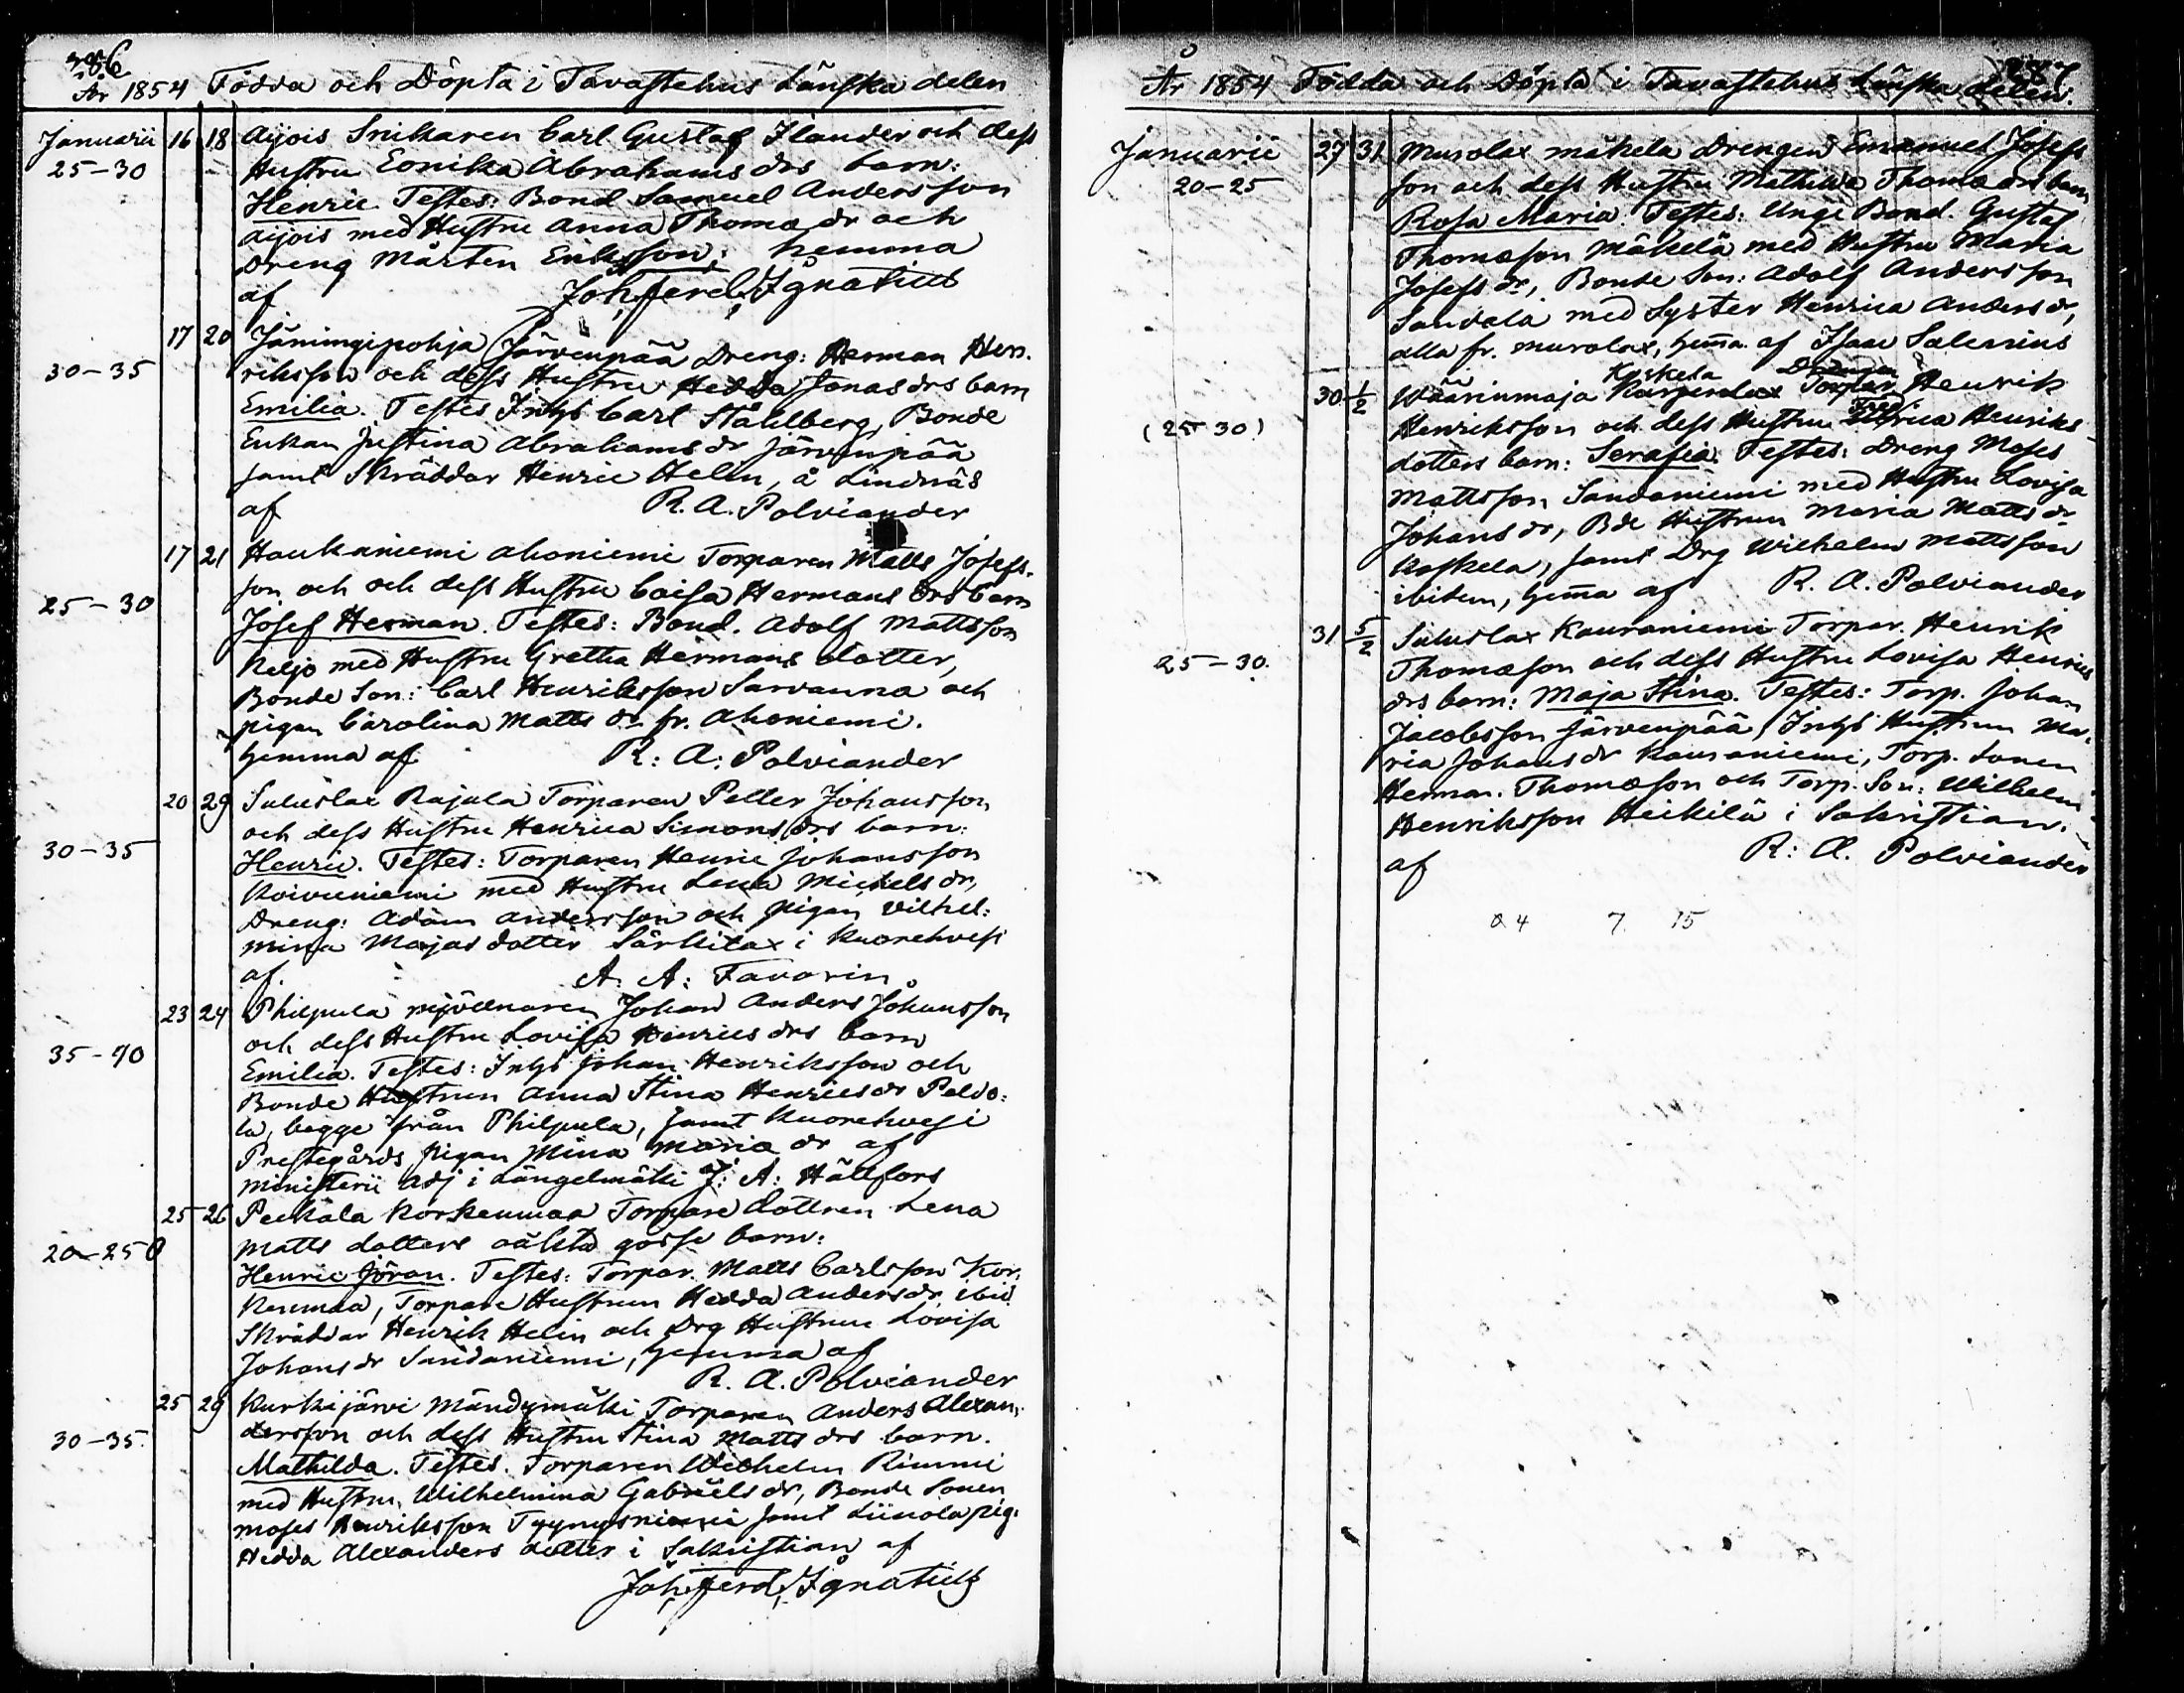 År 1854 Födda och Döpta i Tavastehus Länska delen
Januarii 16 18 Ayois Snikaren Carl Gustaf Ilander och dess
25-30 Hustru Eonika Abrahams drs barn:
Henric Testes: Bond Samuel Andersson
Ayois med Hustru Anna Thomæ dr och
Dreng Mårten Eriksson; hemma
af Joh. Ferd. Ignatius
17 20 Jämingipohja Järvenpää Dreng: Herman Hen-
30-35 riksson och dess Hustru Hedda Jonas drs barn
Emilia. Testes Inhs Carl Ståhlberg, Bonde
Enkan Justina Abrahams dr Järvenpää
samt Skräddar Henric Helen, å Lindnäs
af R. A. Polviander
17 21 Haukaniemi Ahoniemi Torparen Matts Josefs-
son och och dess Hustru Caisa Hermans drs barn
25-30
Josef Herman. Testes: Bond. Adolf Mattsson
Keljo med Hustru Gretha Hermans dotter,
Bonde Son: Carl Henriksson Sarvanna och
pigan Carolina Matts dr fr. Ahoniemi.
hemma af R: A: Polviander
20 29 Suluslax Rajala Torparen Petter Johansson
och dess Hustru Henrica Simons drs barn:
30-35 Henric. Testes: Torparen Henric Johansson
Koivuniemi med Hustru Lena Michels dr,
Dreng: Adam Andersson och pigan Vilhel:
mina Majas dotter Särkilax i Kuorehvesi
af A. A: Favorin
23 24 Philpula mjölnaren Johan Anders Johansson
och dess Hustru Lovisa Henrics drs barn
35-40 Emilia. Testes: Inhs Johan Henriksson och
Bonde Hustrun Anna Stina Henrics dr Peldo:
la, begge från Philpula, samt Kuorehvesi
Prestegårds pigan Mina Maria dr af
Ministerii Adj i Längelmäki J: A: Hällfors
25 26 Peckala Korkeumaa Torpare dottren Lena
20-25 Matts dotters oäkta gosse barn:
Henric Jöran. Testes: Torpar. Matts Carlsson Kor:
keumaa, Torpare Hustrun Hedda Anders dr ibid.
Skräddar Henrik Helin och Drg Hustrun Lovisa
Johans dr Sandaniemi, hemma af
R. A. Polviander
25 29 Kurkijärvi Mändymäki Torparen Anders Alexan:
30-35. dersson och dess Hustru Stina Matts drs barn.
Mathilda. Testes. Torparen Wilhelm Rimmi
med Hustru Wilhelmina Gabriels dr, Bonde Sonen
Moses Henriksson Tyynysniemi samt Liinola pig:
Hedda Alexanders dotter i Sakristian af
Joh. Ferd. Ignatius
År 1854 Födda och Döpta i Tavastehus Länska delen.
Januarii 27 31 Murolax Mäkelä Drengen Emanuel Josefs
20-25 son och dess Hustru Mathilda Thomæ drs barn
Rosa Maria. Testes: Unge Bond. Gustaf
Thomæson Mäkelä med Hustru Maria
Josefs dr, Bonde Son: Adolf Andersson
Sandala med Syster Henrica Anders dr,
alla fr. Murolax, hemma af Isaac Salenius
Koskela Drängen
30 1/2 Wäärinmaja Torpar Henrik
(25-30) Henriksson och dess Hustru Henriks-
dotters barn: Serafia. Testes: Dreng Moses
Mattsson Sandaniemi med Hustru Lovisa
Johans dr, Bde Hustrun Maria Matts dr
Koskela, samt Drg Wilhelm Mattsson
ibidem, hemma af R. A. Polviander
31 5/2 Suluslax Kauraniemi Torpar. Henrik
25-30. Thomæson och dess Hustru Lovisa Henrics
drs barn: Maja Stina. Testes: Torp. Johan
Jacobsson Järvenpää, Inhs Hustrun Ma-
ria Johans dr Kauraniemi, Torp. Sonen
Herman. Thomæson och Torp. Son: Wilhelm
Henriksson Heikilä i Sakristian.
af R: A. Polviander
7. 15